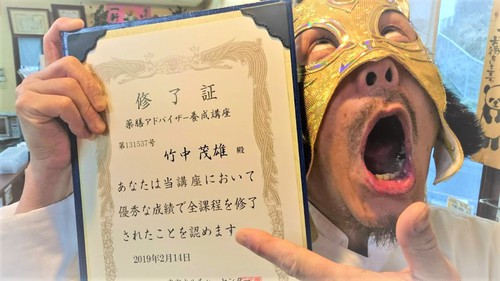 修了証
薬膳アドバイザー養成講座
第131537号
竹中 茂雄 殿
あなたは当講座において
優秀な成績で全課程を修了
されたことを認めます
2019年2月14日